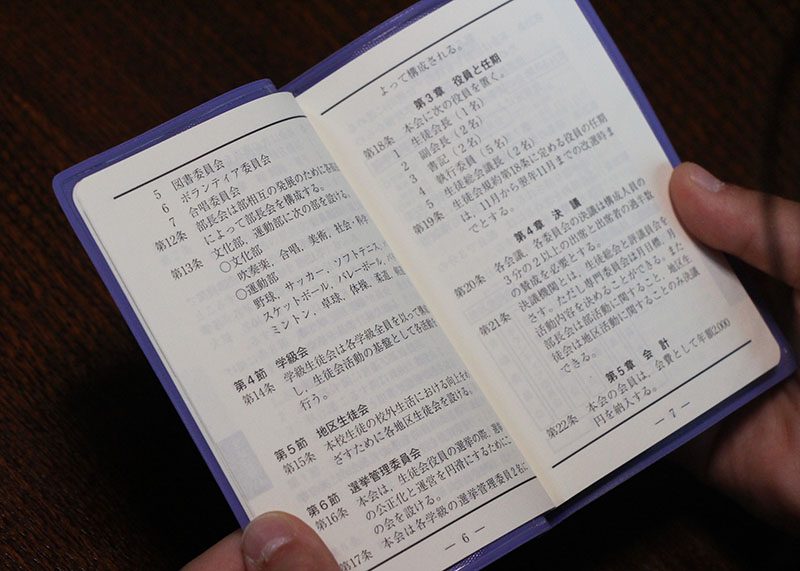 5 図書委員会
6 ボランティア委員会
7 合唱委員会
第12条 部長会は部相互の発展のために各部
によって部長会を構成する。
第13条 文化部，運動部に次の部を設ける。
○文化部
吹奏楽，合唱，美術，社会・科学
○運動部
野球，サッカー，ソフトテニス，
スケットボール，バレーボール，バ
ミントン，卓球，体操，柔道，
第4節 学級会
第14条 学級生徒会は各学級全員を以って
し，生徒会活動の基盤として各
行う。
第5節 地区生徒会
第15条 本校生徒の校外生活における向上をめ
ざすために各地区生徒会を設ける。
第6節 選挙管理委員会
第16条 本会は，生徒会役員の選挙の際，選挙
の公正化と運営を円滑にするために
の会を設ける。
第17条 本会は各学級の選挙管理委員2名に
― 6 ―
よって構成される。
第3章 役員と任期
第18条 本会に次の役員を置く。
1 生徒会長（1名）
2 副会長（2名）
3 書記（2名）
4 執行委員（5名）
5 生徒総会議長（2名）
第19条 生徒会規約第18条に定める役員の任期
は，11月から翌年11月までの改選時ま
でとする。
第4章 決議
第20条 各会議，各委員会の決議は構成人員の
3分の2以上の出席と出席者の過半数
の賛成を必要とする。
第21条 決議機関とは，生徒総会と評議員会を
さす。ただし専門委員会は月目標・月
活動内容を決めることができる。また
部長会は部活動に関すること，地区生
徒会は地区活動に関することのみ決議
できる。
第5章 会計
第22条 本会の会員は，会費として年額2000
円を納入する。
― 7 ―